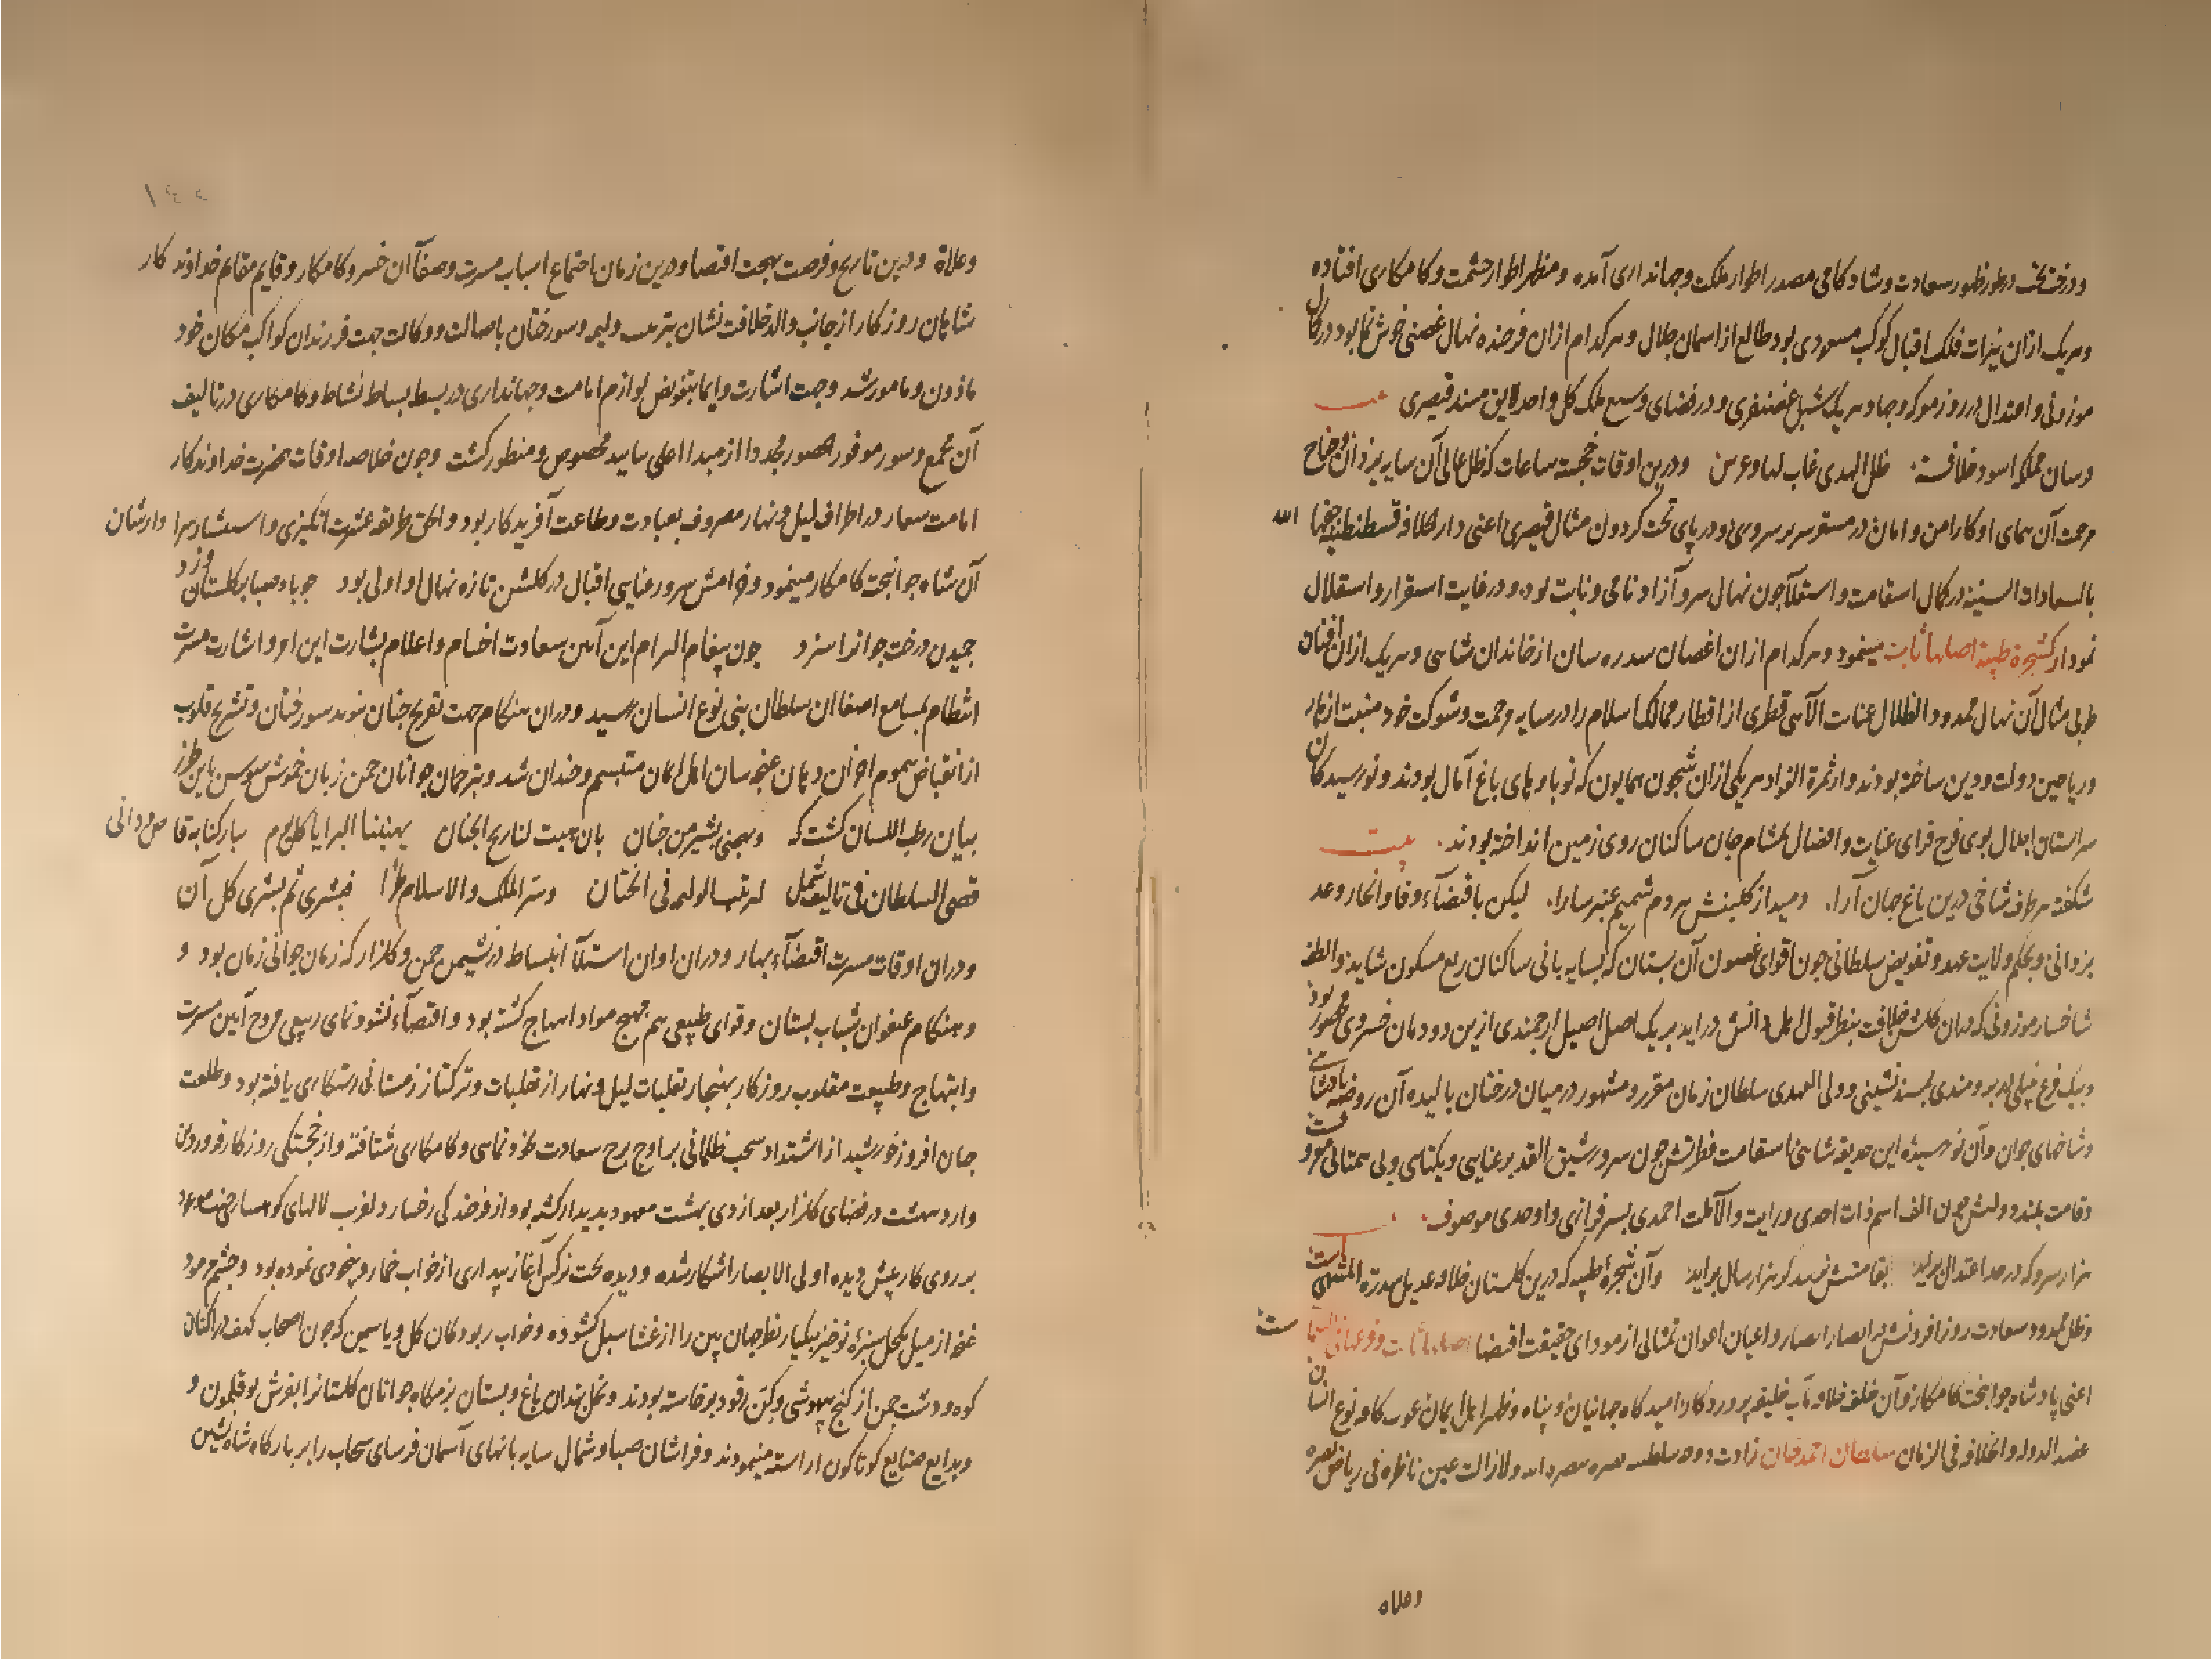 و درخت بخت در طور ظهور سعادت و شادکامی مصدر اطوار ملک و جهانداری آمده و مظهر اطوار حشمت و کامکاری افتاده
و هر یک ازان نیرات فلک اقبال کوکب مسعودی بود طالع از اسمان جلال و هر کدام ازان فرخنده نهال غصنی خوش نما بود در کمال
موزونی و اعتدال در روز معرکه و جهاد هر یک شبل غضنفری و در فضای وسیع ملک کل واحد لایق مسند قیصری
وسان مملکه اسود خلافته ظل الهدی غاب لها و عرین و درین اوقات خجسته ساعات که ظل عالی آن سایه یزدان و جناح
مرحمت آن همای اوکار امن و امان در مستقر سریر سروری و در پای تخت کردون مثال قیصری اعنی دار الخلافه قسطنطنیه حفها الله
بالسعادات السنیه در کمال استقامت و استعلا چون نهال سرو آزاد نامی و ثابت بود و در غایت استقرار و استقلال
نمودار کشجرة طیبة اصلها ثابت مینمود و هر کدام ازان اغصان سدره سان از خاندان شاهی و هر یک ازان افنان
طوبی مثال آن نهال ممدود الظلال عنایت الآهی قطری از اقطار ممالک اسلام را در سایه رحمت و شوکت خود منبت ازهار
و ریاحین دولت و دین ساخته بودند و از ثمرة الفواد هر یکی ازان شجون همایون که نوباوهای باغ آمال بودند و نورسیدکان
سرابستان اجلال بوی فرح فزای عنایت و افضال بمشام جان ساکنان روی زمین انداخته بودند بیت
شکفته هر طرف شاخی درین باغ جهان آرا دمید از کلبنش هر دم شمیم عنبر سارا لیکن باقتضآء وفا و انجاز وعد
یزدانی و بحکم ولایت عهد و تفویض سلطانی چون اقوای غصون آن بستان که بسایه بانی ساکنان ربع مسکون شاید و الطف
شاخسار موزونی که دران کلشن خلافت بنظر قبول اهل دانش دراید بر یک اصل اصیل ارجمندی ازین دودمان خسروی محصور بود
و بیک فرع نبیل برومندی بمسند نشینی و ولی العهدی سلطان زمان مقرر و مشهور در میان درختان بالیده آن روضه پادشاهی
و شاخهای جوان و آن نورسیده این حدیقه شاهی استقامت فطرتش چون سرو رشیق القد برعنایی و یکتایی و بی همتایی معروفست
و قامت بلند دولتش چون الف اسم ذات احدی و رایت والآ ملت احمدی بسرفرازی و اوحدی موصوف
هزار سرو که در حد اعتدال براید بقامتش نرسد کر هزار سال براید و آن شجره طیبه که درین کلستان خلافه عدیل سدرة المنتهی است
و ظل ممدود سعادت روز افزونش بر ابصار انصار و اعیان اعوان تمثالی از مودای حقیقت اقتضا اصلها ثابت و فرعها فی السمآ ست
اعنی پادشاه جوانبخت کامکار و آن خلف خلافه مآب خلیفه پروردکار امید کاه جهانیان و پناه و ظهر اهل ایمان عون کافه نوع انسان
عضد الدوله و الخلافه فی الزمان سلطان احمد خان زادت دوحه سلطنته ولا زالت عین ناظره فی ریاض نصره
وعلاه
وعلاة و درین تاریخ و فرصت بهجت اقتضا و درین زمان اجتماع اسباب مسرت و صفا آن خسرو کامکار و قایم مقام خداوند کار
شاهان روزکار از جانب والد خلافت نشان بترتیب ولیمه و سور ختان باصالت و وکالت جهت فرزندان کواکب مکان خود
ماذون و مامور شد و جهت اشارت و ایما بتفویض لوازم امامت و جهانداری در بسط بساط نشاط و کامکاری در تالیف
آن مجمع و سور موفور الحضور مجددا از مبدا اعلی بتایید مخصوص و منظور کشت و چون خلاصه اوقات حضرت خداوندکار
امامت شعار در اطراف لیل و نهار مصروف بعبادت و طاعت آفریدکار بود و الحق طریقه عشرت انکیزی و استبشار سزاوار شان
آن شاه جوانبخت کامکار مینمود و خرامش سرو رعنایی اقبال در کلشن تازه نهال او اولی بود چو باد صبا بر کلستان وزد
چمیدن درخت جوانرا سزد چون پیغام الهام این آیین سعادت اختتام و اعلام بشارت این امر و اشارت مسرت
انتظام بمسامع اصغا ان سلطان بنی نوع انسان رسید و دران هنکام جهت تفریح جنان بنوید سور ختان و تشریح قلوب
از انقباض هموم احزان دهان غنچه سان اهل ایمان متبسم و خندان شد و بترجمان جوانان چمن زبان خوش سوسن باین طرز
بیان رطب اللسان کشت که بان هبت لنا ریح الجنان یهنینا البرایا کل یوم
قضی السلطان فی تالیف شمل لترتیب الولیمه فی الختان و سر الملک و الاسلام طرا فبشری ثم بشری کل آن
و دران اوقات مسرت اقتضآء بهار و دران اوان استیلآ انبساط در نشیمن چمن و کلزار که زمان جوانی زمان بود و
و هنکام عنفوان شباب بستان و قوای طبیعی هم مهیج مواد ابتهاج کشته بود و اقتضآء نشو و نمای ربیعی مروح آیین مسرت
و ابتهاج و طبیعت مقلوب روزکار بهنجار تقلبات لیل و نهار از تقلبات و ترکتاز زمستانی رستکاری یافته بود و طلعت
جهان افروز خورشید از اشتداد سحب ظلمانی بر اوج برج سعادت طره نمایی و کامکاری شتافته و از خجستکی روزکار فروردین
و اردبهشت در فضای کلزار بعد از دی بهشت معهود پدیدار کشته بود و از فرخندکی رخسار دلفریب لالهای کوهسار
بر روی کار پیش دیده اولی الابصار اشکار شده و دیده بخت نرکس آغاز بیداری از خواب خمار و بیخودی نموده بود و چشم مرمود
غنچه از میل مکحل سبزه نوخیز بیکبار نظر جهان بین را از غشا سبل کشوده و خواب ربودکان کل و یاسمین که چون اصحاب کهف در اکنان
کوه و دشت چمن از کنج بیهوشی و مکمن رقود برخاسته بودند و نخل بندان باغ و بستان بزمکاه جوانان کلستانرا بفرش بوقلمون و
و بدایع صنایع کوناکون اراسته مینمودند و فراشان صبا و شمال سایه بانهای آسمان فرسای سحاب را بر بارکاه شاه نشین